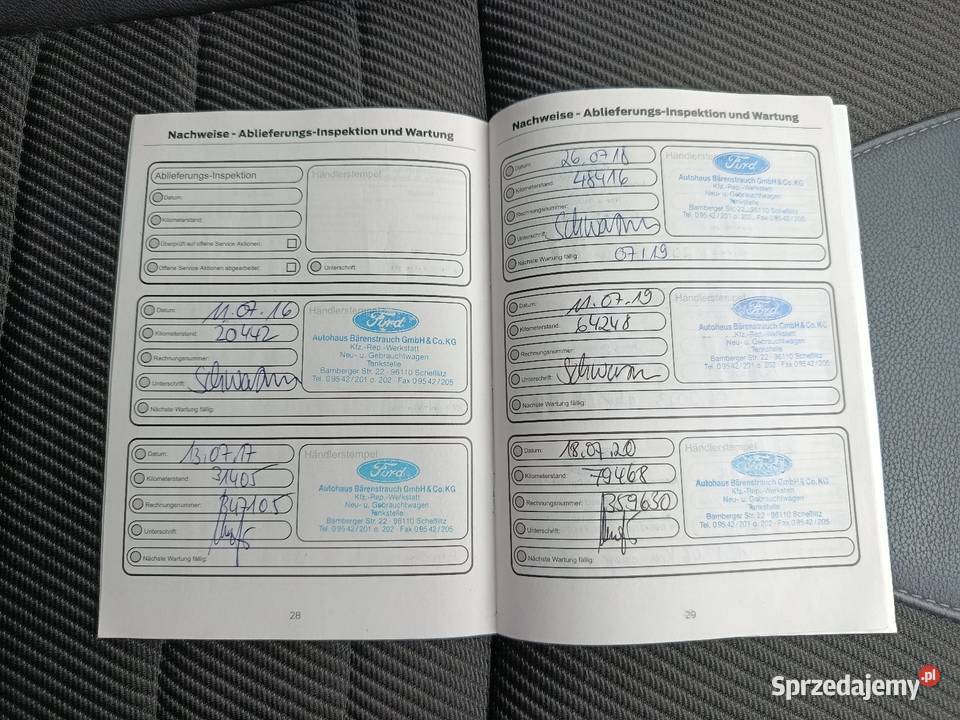 Nachweise - Ablieferungs-Inspektion und Wartung
Ablieferungs-Inspektion
Händlerstempel
Datum:
Kilometerstand:
Überprüft auf offene Service Aktionen:
Offene Service Aktionen abgearbeitet:
Unterschrift:
Datum: 11.07.16
Kilometerstand: 20442
Rechnungsnummer:
Unterschrift: Schwarm
Nächste Wartung fällig:
Händlerstempel
Ford
Autohaus Bärenstrauch GmbH & Co. KG
Kfz.-Rep.-Werkstatt
Neu- u. Gebrauchtwagen
Tankstelle
Bamberger Str. 22 · 96110 Scheßlitz
Tel. 0 95 42 / 201 o. 202 · Fax 0 95 42 / 205
Datum: 13.07.17
Kilometerstand: 31405
Rechnungsnummer: 347105
Unterschrift:
Nächste Wartung fällig:
Händlerstempel
Ford
Autohaus Bärenstrauch GmbH & Co. KG
Kfz.-Rep.-Werkstatt
Neu- u. Gebrauchtwagen
Tankstelle
Bamberger Str. 22 · 96110 Scheßlitz
Tel. 0 95 42 / 201 o. 202 · Fax 0 95 42 / 205
28
Nachweise - Ablieferungs-Inspektion und Wartung
Datum: 26.07.18
Kilometerstand: 48416
Rechnungsnummer:
Unterschrift: Schwarm
Nächste Wartung fällig: 07/19
Händlerstempel
Ford
Autohaus Bärenstrauch GmbH & Co. KG
Kfz.-Rep.-Werkstatt
Neu- u. Gebrauchtwagen
Tankstelle
Bamberger Str. 22 · 96110 Scheßlitz
Tel. 0 95 42 / 201 o. 202 · Fax 0 95 42 / 205
Datum: 11.07.19
Kilometerstand: 64248
Rechnungsnummer:
Unterschrift: Schwarm
Nächste Wartung fällig:
Händlerstempel
Ford
Autohaus Bärenstrauch GmbH & Co. KG
Kfz.-Rep.-Werkstatt
Neu- u. Gebrauchtwagen
Tankstelle
Bamberger Str. 22 · 96110 Scheßlitz
Tel. 0 95 42 / 201 o. 202 · Fax 0 95 42 / 205
Datum: 18.07.20
Kilometerstand: 79468
Rechnungsnummer: 359630
Unterschrift:
Nächste Wartung fällig:
Händlerstempel
Ford
Autohaus Bärenstrauch GmbH & Co. KG
Kfz.-Rep.-Werkstatt
Neu- u. Gebrauchtwagen
Tankstelle
Bamberger Str. 22 · 96110 Scheßlitz
Tel. 0 95 42 / 201 o. 202 · Fax 0 95 42 / 205
29
Sprzedajemy.pl